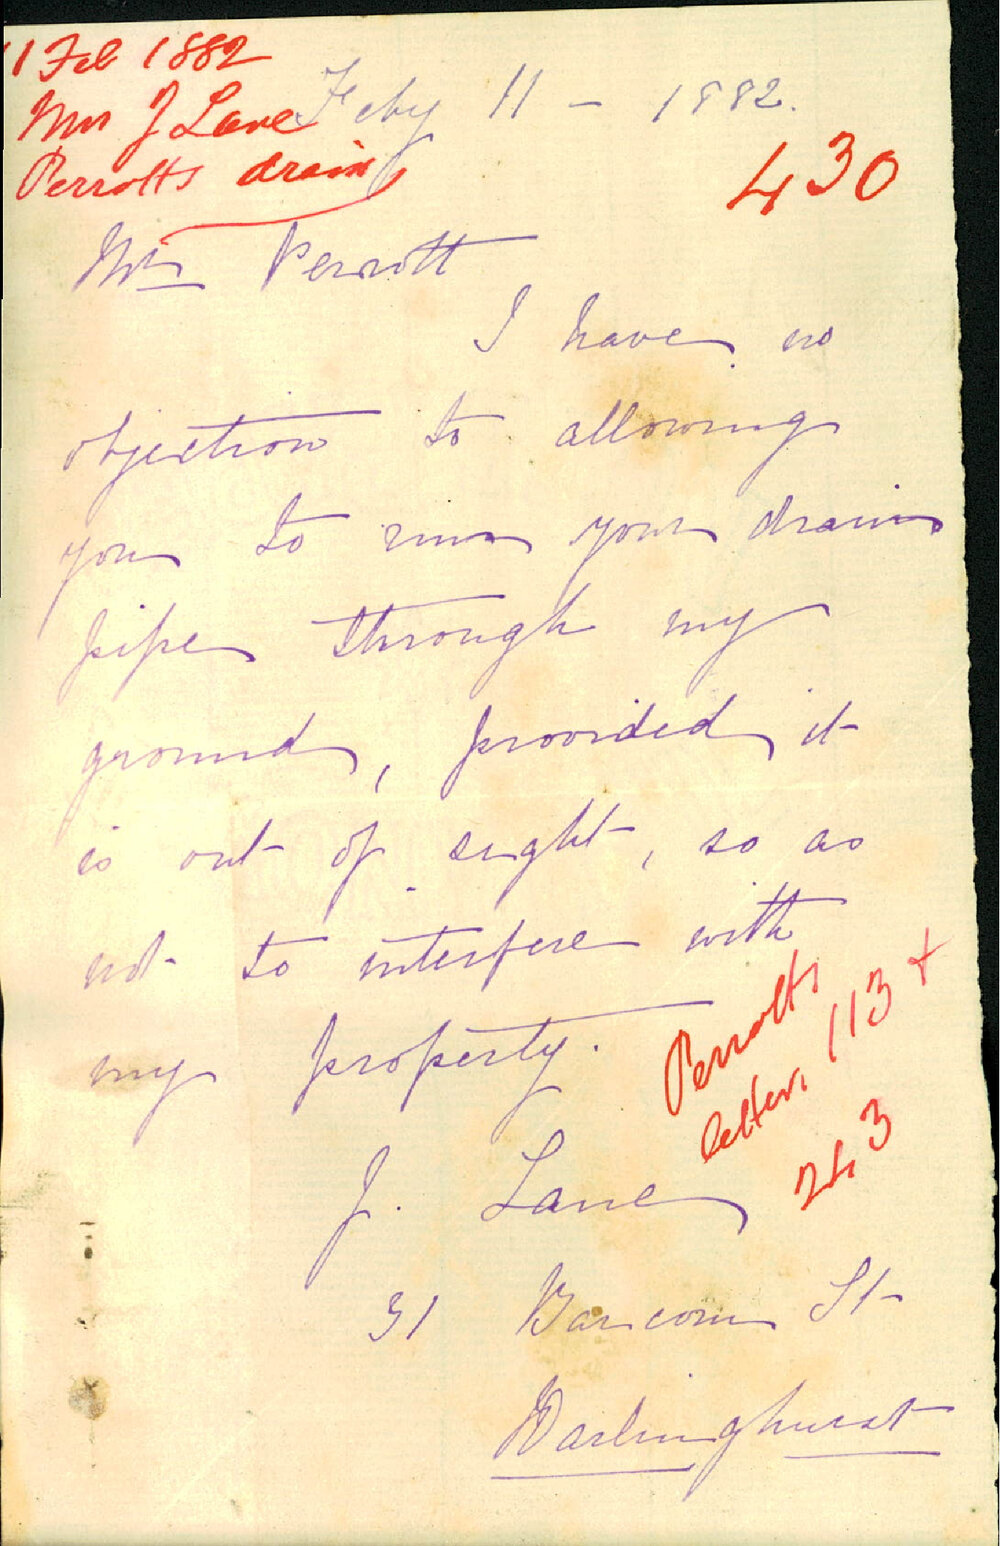 11 Feb 1882
Mrs J Lane
Perrotts drain
Feby 11 - 1882.
430
Mr Perrott
I have no
objection to allowing
you to run your drain
pipe through my
ground, provided it
is out of sight, so as
not to interfere with
my property.
Perrotts
letter, 113 +
243
J. Lane
31 Barcom St
Darlinghurst